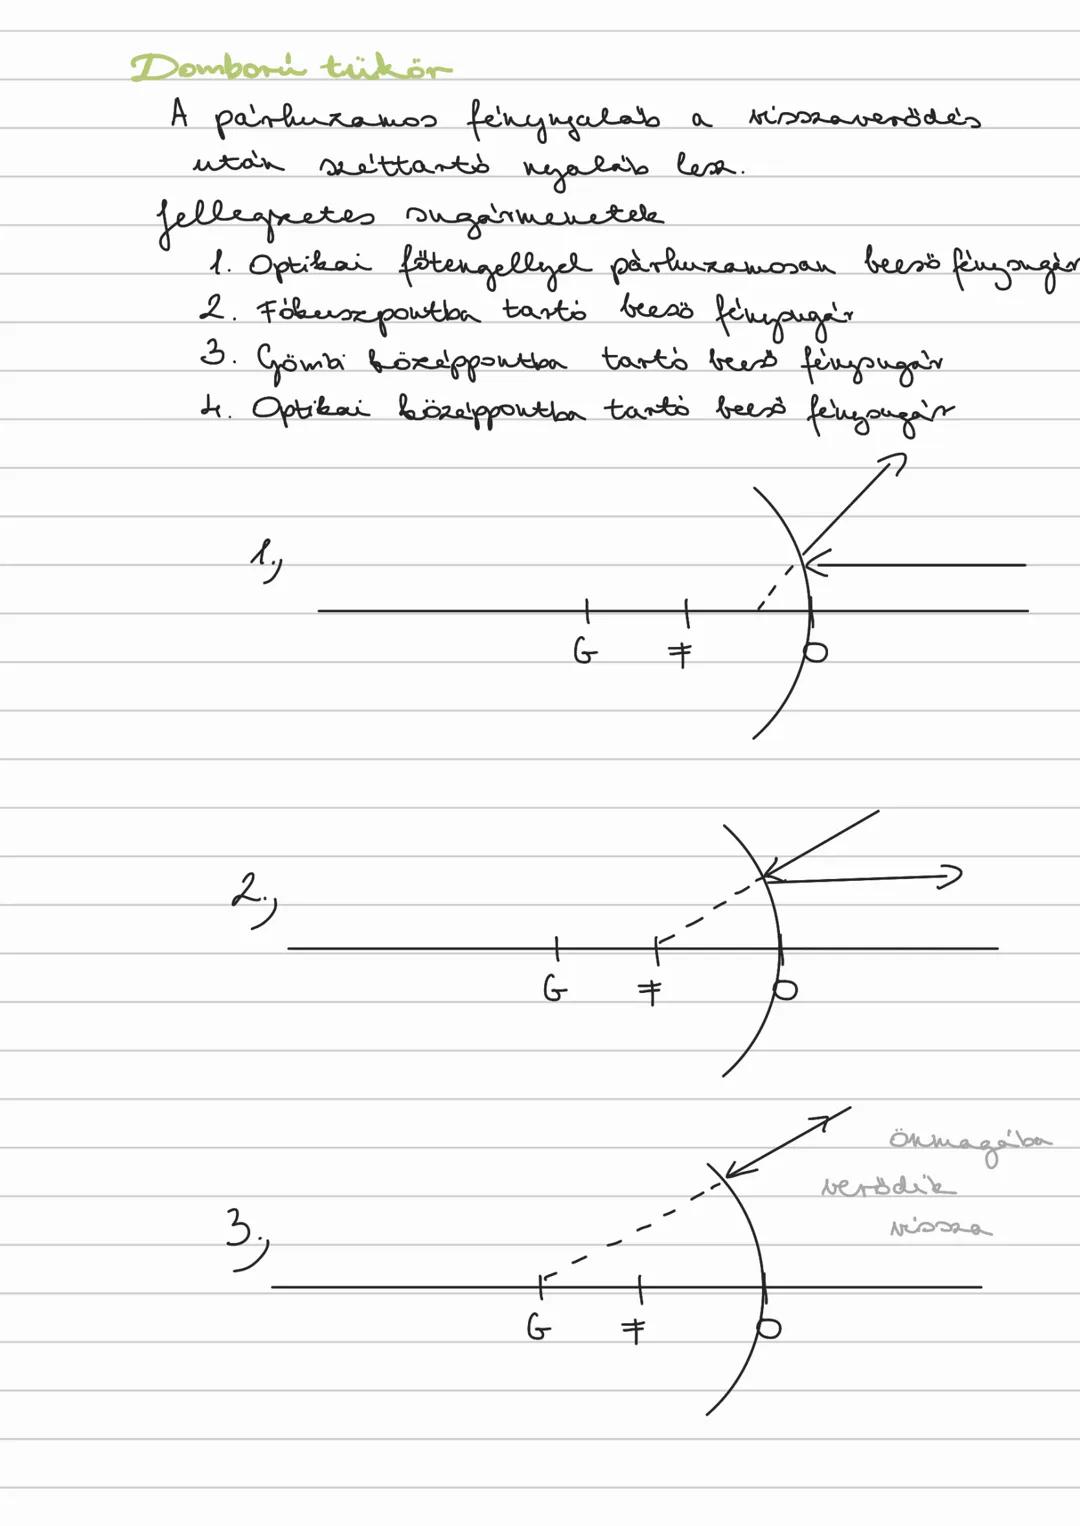 Domború tükör
A párhuzamos fénynyaláb a visszaverődés
után széttartó nyaláb lesz.
Jellegzetes sugármenetek
1. Optikai főtengellyel párhuzamosan beeső fénysugár
2. Fókuszpontba tartó beeső fénysugár
3. Gömbi középpontba tartó beeső fénysugár
4. Optikai középpontba tartó beeső fénysugár
1.,
G F O
2.,
G F O
önmagába
verődik
vissza
3.,
G F O